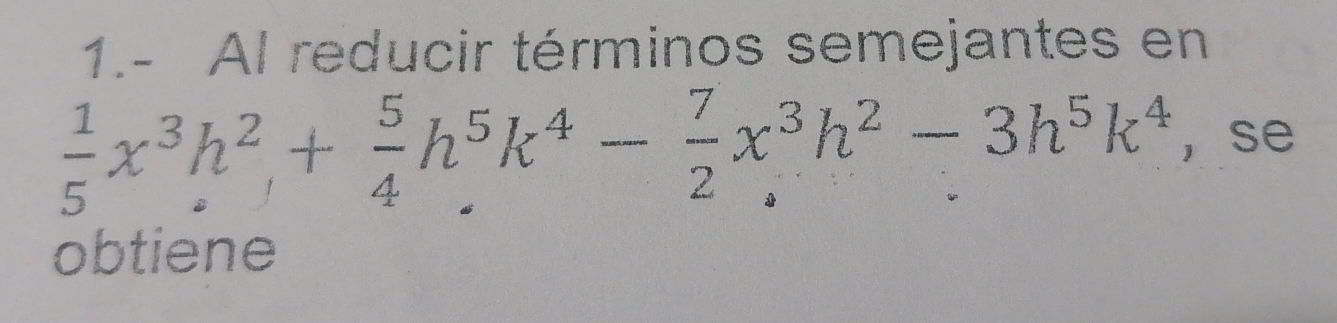 1.- Al reducir términos semejantes en
$\frac{1}{5}x^3h^2 + \frac{5}{4}h^5k^4 - \frac{7}{2}x^3h^2 - 3h^5k^4$, se
obtiene